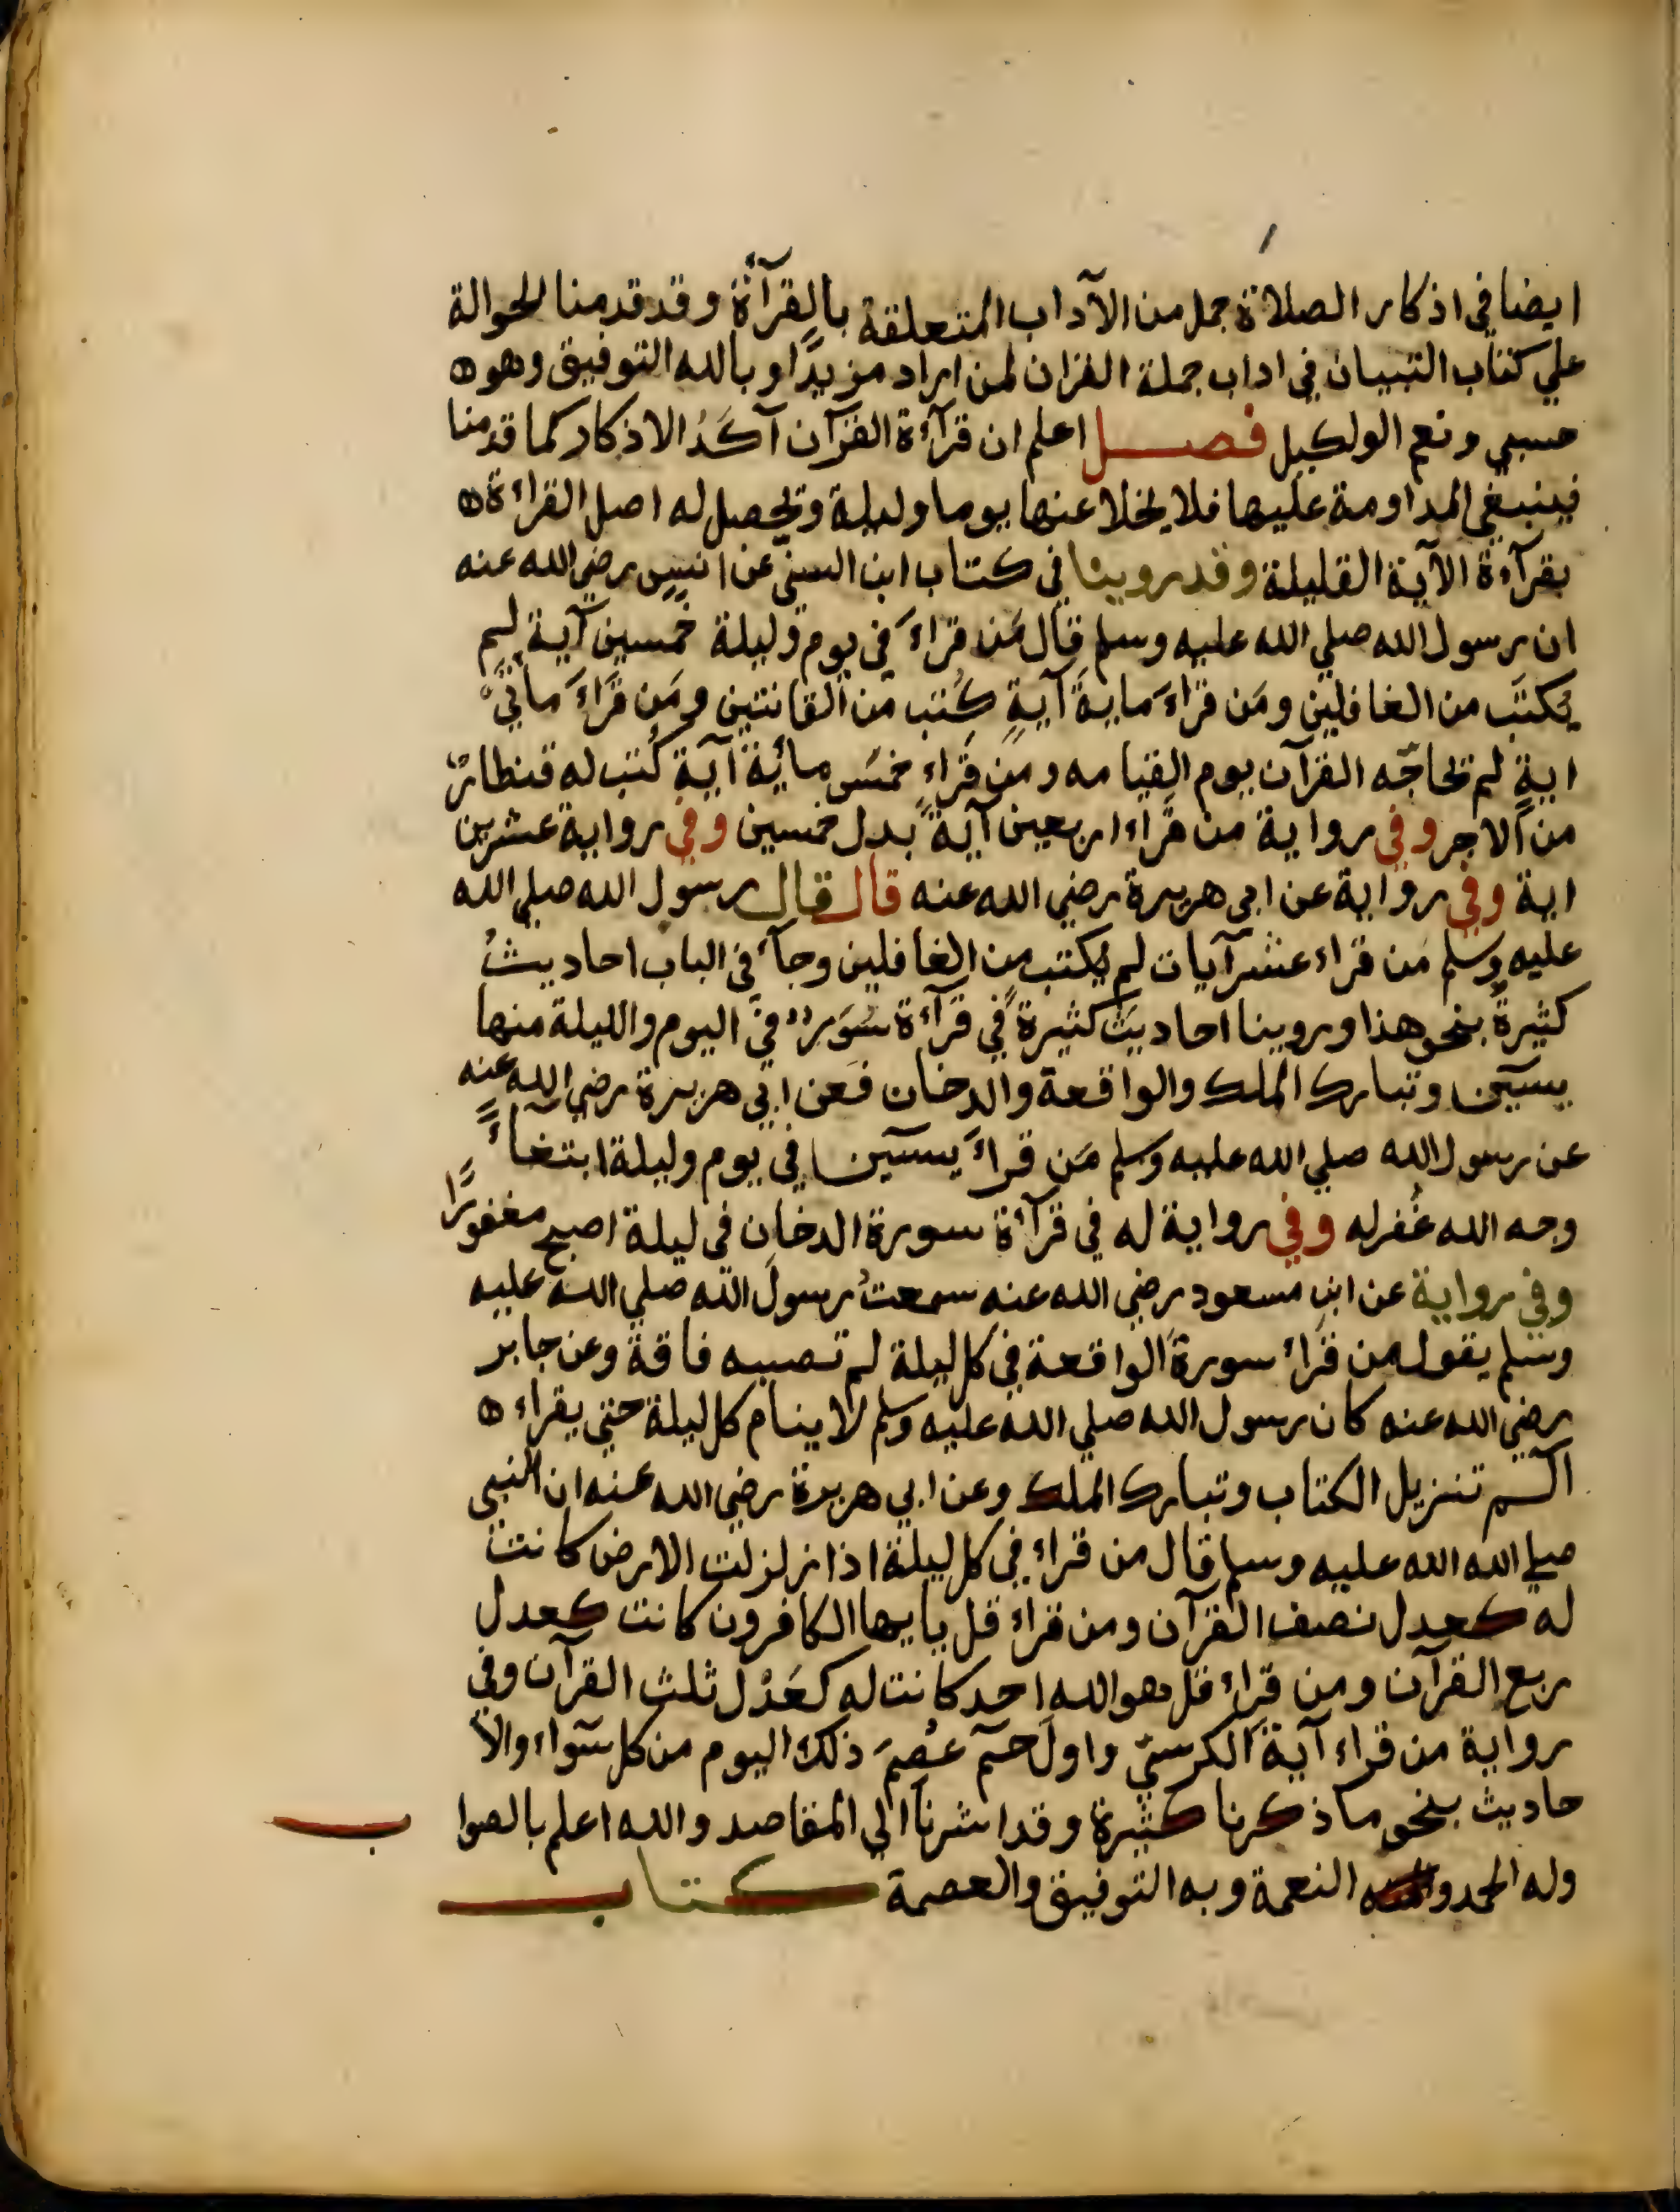 ايضا في اذكار الصلاة جمل من الآداب المتعلقة بالقرآءة وقد قدمنا الحوالة
علي كتاب التبيان في اداب جملة القران لمن اراد مزيدًا وبالله التوفيق وهو
حسبي ونعم الوكيل فصــل اعلم ان قرآءة القرآن آكَدُ الاذكار كما قدمنا
فينبغي المداومة عليها فلا يخلا عنها يوما وليلة ويحصل له اصل القراءة
بقرآءة الآية القليلة وقد روينا في كتاب ابن السني عن انسٍ رضي الله عنه
ان رسول الله صلي الله عليه وسلم قال مَن قراءَ في يوم وليلة خمسين آية لم
يُكتَب من الغافلين ومَن قراءَ مايةَ آيةٍ كُتب من القانتين ومَن قَراءَ مأتَي
ايةٍ لم تحاجّه القرآن يوم القيامه ومن قراء خمسَ مائة آيةٍ كُتب له قنطارٌ
من الاجر وفي رواية من قراء اربعين آيةً بدل خمسين وفي رواية عشرين
اية وفي رواية عن ابي هريرة رضي الله عنه قال قال رسول الله صلي الله
عليه وسلم مَن قراء عشر آيات لم يكتب من الغافلين وجآء في الباب احاديثُ
كثيرةٌ بنحو هذا وروينا احاديثَ كثيرةً في قرآءة سُوَرٍ في اليوم والليلة منها
يسين وتبارك الملك والواقعة والدخان فعن ابي هريرة رضي الله عنه
عن رسول الله صلي الله عليه وسلم مَن قراءَ يسين في يوم وليلة ابتغاءً
وجه الله غُفر له وفي رواية له في قرآءة سورة الدخان في ليلة اصبح مغفورًا
وفي رواية عن ابن مسعود رضي الله عنه سمعتُ رسولَ الله صلي الله عليه
وسلم يقول من قَراء سورةَ الواقعة في كل ليلة لم تصيبه فاقة وعن جابر
رضي الله عنه كان رسول الله صلي الله عليه وسلم لا ينام كل ليلة حتي يقراء
الٓم تنزيل الكتاب وتبارك الملك وعن ابي هريرة رضي الله عنه ان النبي
صلي الله الله عليه وسلم قال من قراء في كل ليلة اذا زلزلت الارض كانت
له كعدل نصف القرآن ومن قراء قل يا يها الكافرون كانت كعدل
ربع القرآن ومن قراء قل هو الله احد كانت له كعَدْل ثلث القرآن وفي
رواية من قراء آيةَ الكرسيّ واولَ حٓم عُصِمَ ذلك اليوم من كل سوآء والأ
حاديث بنحو ما ذكرنا كثيرة وقد اشرنا الي المقاصد والله اعلم بالصوا ب
وله الحمد النعمة وبه التوفيق والعصمة كتاب